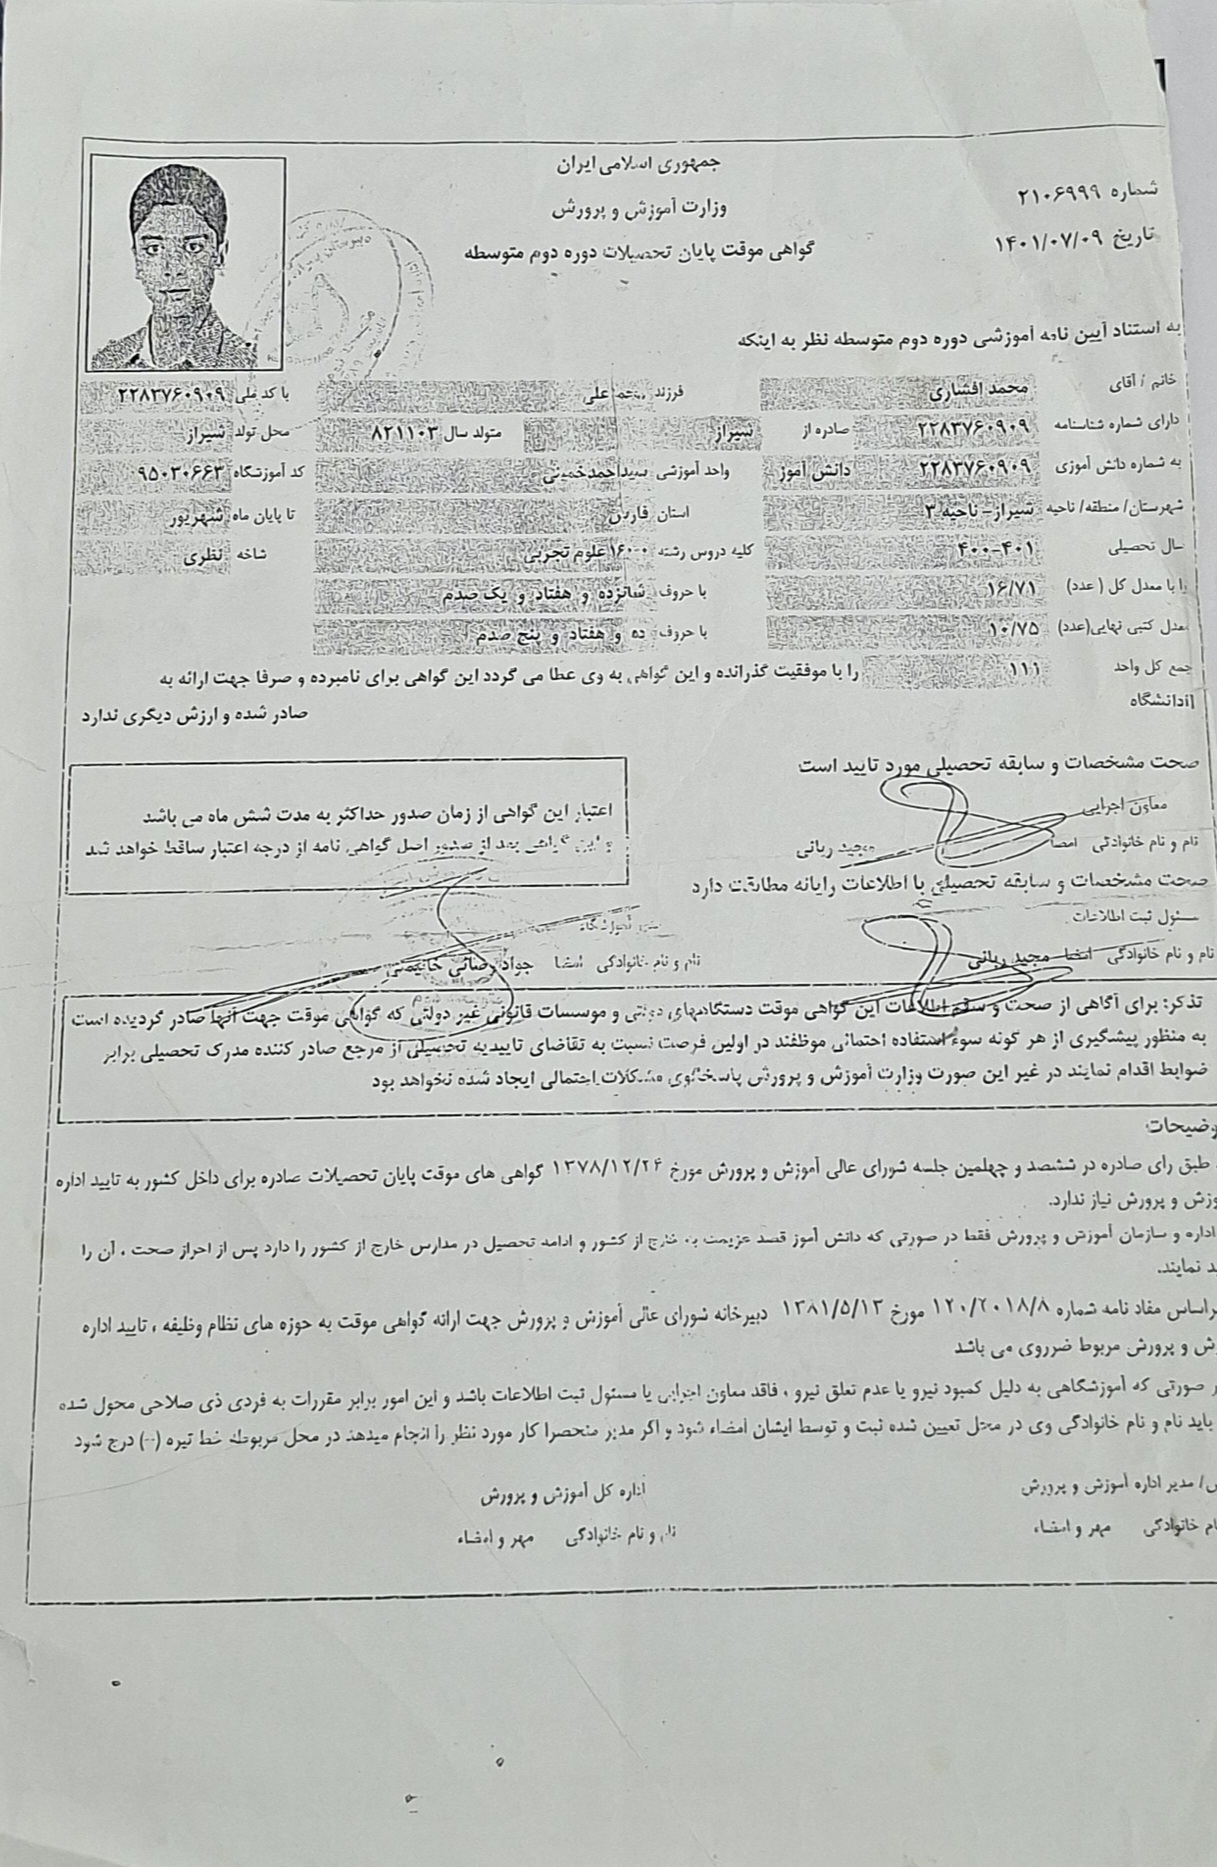 جمهوری اسلامی ایران
شماره ۲۱۰۶۹۹۹
وزارت آموزش و پرورش
تاریخ ۱۴۰۱/۰۷/۰۹
گواهی موقت پایان تحصیلات دوره دوم متوسطه
به استناد آیین نامه آموزشی دوره دوم متوسطه نظر به اینکه
خانم / آقای محمد افشاری فرزند محمد علی با کد ملی ۲۲۸۳۷۶۰۹۰۹
دارای شماره شناسنامه ۲۲۸۳۷۶۰۹۰۹ صادره از شیراز متولد سال ۸۲۱۱۰۳ محل تولد شیراز
به شماره دانش آموزی ۲۲۸۳۷۶۰۹۰۹ دانش آموز واحد آموزشی سیداحمدخمینی کد آموزشگاه ۹۵۰۳۰۶۶۳
شهرستان/ منطقه/ ناحیه شیراز - ناحیه ۳ استان فارس تا پایان ماه شهریور
سال تحصیلی ۴۰۰-۴۰۱ کلیه دروس رشته ۱۶۰۰۰ علوم تجربی شاخه نظری
را با معدل کل ( عدد) ۱۶/۷۱ با حروف شانزده و هفتاد و یک صدم
معدل کتبی نهایی(عدد) ۱۰/۷۵ با حروف ده و هفتاد و پنج صدم
جمع کل واحد ۱۱۱ را با موفقیت گذرانده و این گواهی به وی عطا می گردد این گواهی برای نامبرده و صرفا جهت ارائه به
دانشگاه صادر شده و ارزش دیگری ندارد
صحت مشخصات و سابقه تحصیلی مورد تایید است
معاون اجرایی
اعتبار این گواهی از زمان صدور حداکثر به مدت شش ماه می باشد
نام و نام خانوادگی امضا مجید ربانی
و این گواهی بعد از صدور اصل گواهی نامه از درجه اعتبار ساقط خواهد شد
صحت مشخصات و سابقه تحصیلی با اطلاعات رایانه مطابقت دارد
مسئول ثبت اطلاعات
مدیر آموزشگاه
نام و نام خانوادگی امضا مجید ربانی
نام و نام خانوادگی امضا جواد رضائی
تذکر: برای آگاهی از صحت و سقم اطلاعات این گواهی موقت دستگاههای دولتی و موسسات قانونی غیر دولتی که گواهی موقت جهت آنها صادر گردیده است
به منظور پیشگیری از هر گونه سوء استفاده احتمالی موظفند در اولین فرصت نسبت به تقاضای تاییدیه تحصیلی از مرجع صادر کننده مدرک تحصیلی برابر
ضوابط اقدام نمایند در غیر این صورت وزارت آموزش و پرورش پاسخگوی مشکلات احتمالی ایجاد شده نخواهد بود
وضیحات
طبق رای صادره در ششصد و چهلمین جلسه شورای عالی آموزش و پرورش مورخ ۱۳۷۸/۱۲/۲۶ گواهی های موقت پایان تحصیلات صادره برای داخل کشور به تایید اداره
وزش و پرورش نیاز ندارد.
اداره و سازمان آموزش و پرورش فقط در صورتی که دانش آموز قصد عزیمت به خارج از کشور و ادامه تحصیل در مدارس خارج از کشور را دارد پس از احراز صحت ، آن را
ید نمایند.
براساس مفاد نامه شماره ۱۲۰/۲۰۱۸/۸ مورخ ۱۳۸۱/۵/۱۳ دبیرخانه شورای عالی آموزش و پرورش جهت ارائه گواهی موقت به حوزه های نظام وظیفه ، تایید اداره
زش و پرورش مربوط ضرروی می باشد
ر صورتی که آموزشگاهی به دلیل کمبود نیرو یا عدم تعلق نیرو ، فاقد معاون اجرایی یا مسئول ثبت اطلاعات باشد و این امور برابر مقررات به فردی ذی صلاحی محول شده
باید نام و نام خانوادگی وی در محل تعیین شده ثبت و توسط ایشان امضاء شود و اگر مدیر منحصرا کار مورد نظر را انجام میدهد در محل مربوطه خط تیره (--) درج شود
س/ مدیر اداره آموزش و پرورش
اداره کل آموزش و پرورش
نام خانوادگی مهر و امضاء
نام و نام خانوادگی مهر و امضاء